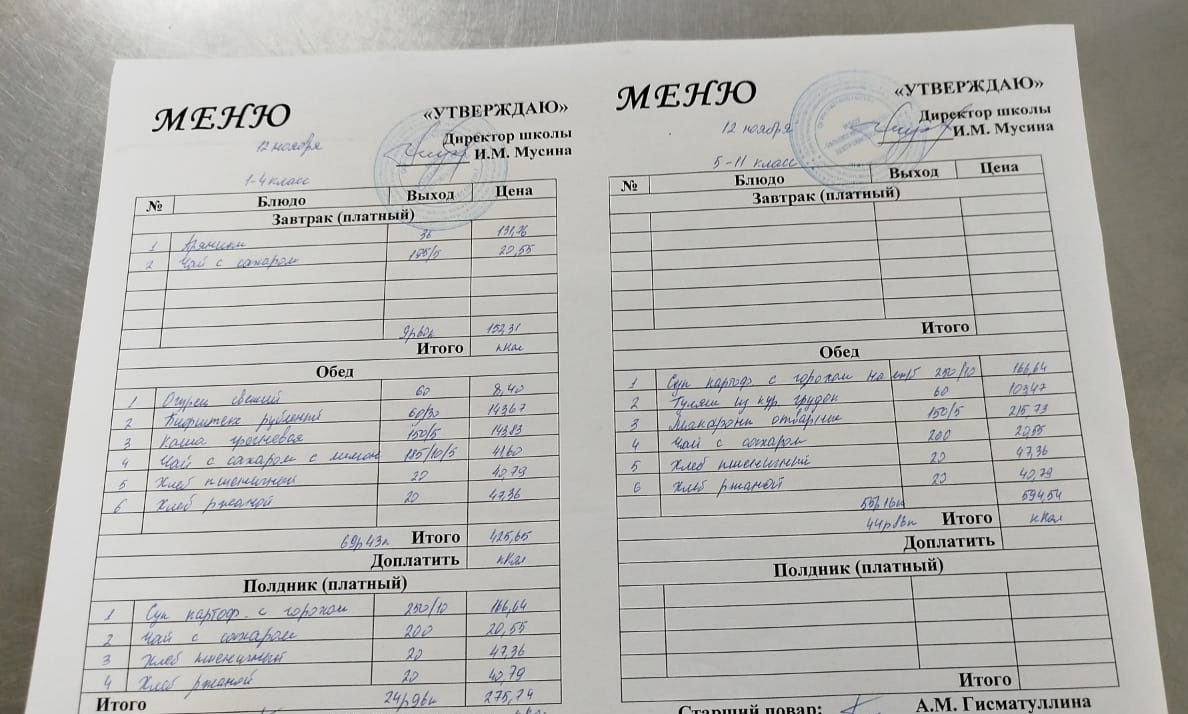 МЕНЮ
«УТВЕРЖДАЮ»
Директор школы
И.М. Мусина
12 ноября
1-4 класс
№ Блюдо Выход Цена
Завтрак (платный)
1 Пряники 36 131,76
2 Чай с сахаром 195/5 20,55
9р60к 152,31
Итого кКал
Обед
1 Огурец свежий 60 8,40
2 Бифштекс рубленный 60/30 143,67
3 Каша гречневая 150/5 143,83
4 Чай с сахаром с лимоном 185/10/5 41,60
5 Хлеб пшеничный 20 40,79
6 Хлеб ржаной 20 47,36
69р43к Итого 425,65
Доплатить кКал
Полдник (платный)
1 Суп картоф. с горохом 250/10 166,64
2 Чай с сахаром 200 20,55
3 Хлеб пшеничный 20 47,36
4 Хлеб ржаной 20 40,79
Итого 24р96к 275,74
кКал
МЕНЮ
«УТВЕРЖДАЮ»
Директор школы
И.М. Мусина
12 ноября
5-11 класс
№ Блюдо Выход Цена
Завтрак (платный)
Итого
Обед
1 Суп картоф с горохом на 250/10 166,64
2 Гуляш из кур грудок 60 103,47
3 Макароны отварные 150/5 215,73
4 Чай с сахаром 200 20,55
5 Хлеб пшеничный 20 47,36
6 Хлеб ржаной 20 40,79
55р16к 594,54
44р86к Итого кКал
Доплатить
Полдник (платный)
Итого
Старший повар: А.М. Гисматуллина